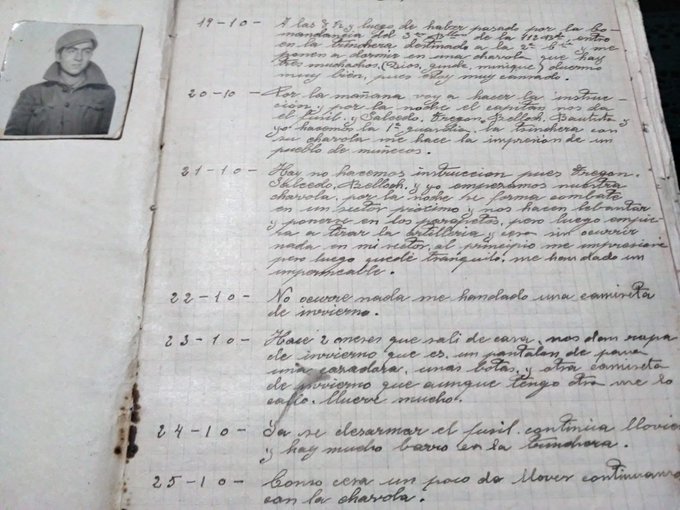 19-10- A las 8 ½ y luego de haber pasado por la co-
mandancia del 3er Bllon de la 112 Bda entro
en la trinchera destinado a la 2ª Cia y me
ponen a dormir en una chavola que hay
tres muchachos (Rios, Munique) duermo
muy bien, pues estoy muy cansado.
20-10- Por la mañana voy a hacer la instruc-
ción y por la noche el capitan nos da
el fusil. y Salcedo, Oregon, Belloch, Bautista y
yo hacemos la 1ª guardia, la trinchera con
su chavola me hace la impresion de un
pueblo de muñecos.
21-10- Hoy no hacemos instruccion pues Oregon,
Salcedo, Belloch, y yo empezamos nuestra
chavola, por la noche se forma combate
en un sector proximo y nos hacen levantar
y ponerse en los parapetos, pero luego empie-
za a tirar la artilleria y cesa sin ocurrir
nada en mi sector, al principio me impresioné
pero luego quedé tranquilo. me han dado un
impermeable.
22-10- No ocurre nada me handado una camiseta
de invierno.
23-10- Hace 2 meses que sali de casa, nos dan ropa
de invierno que es, un pantalon de pana
una cazadora, unas botas, y otra camiseta
de invierno que aunque tengo otra me lo
callo. Llueve mucho.
24-10- Ya se desarmar el fusil. continua lloviendo
y hay mucho barro en la trinchera.
25-10- Como cesa un poco de llover continuamos
con la chavola.